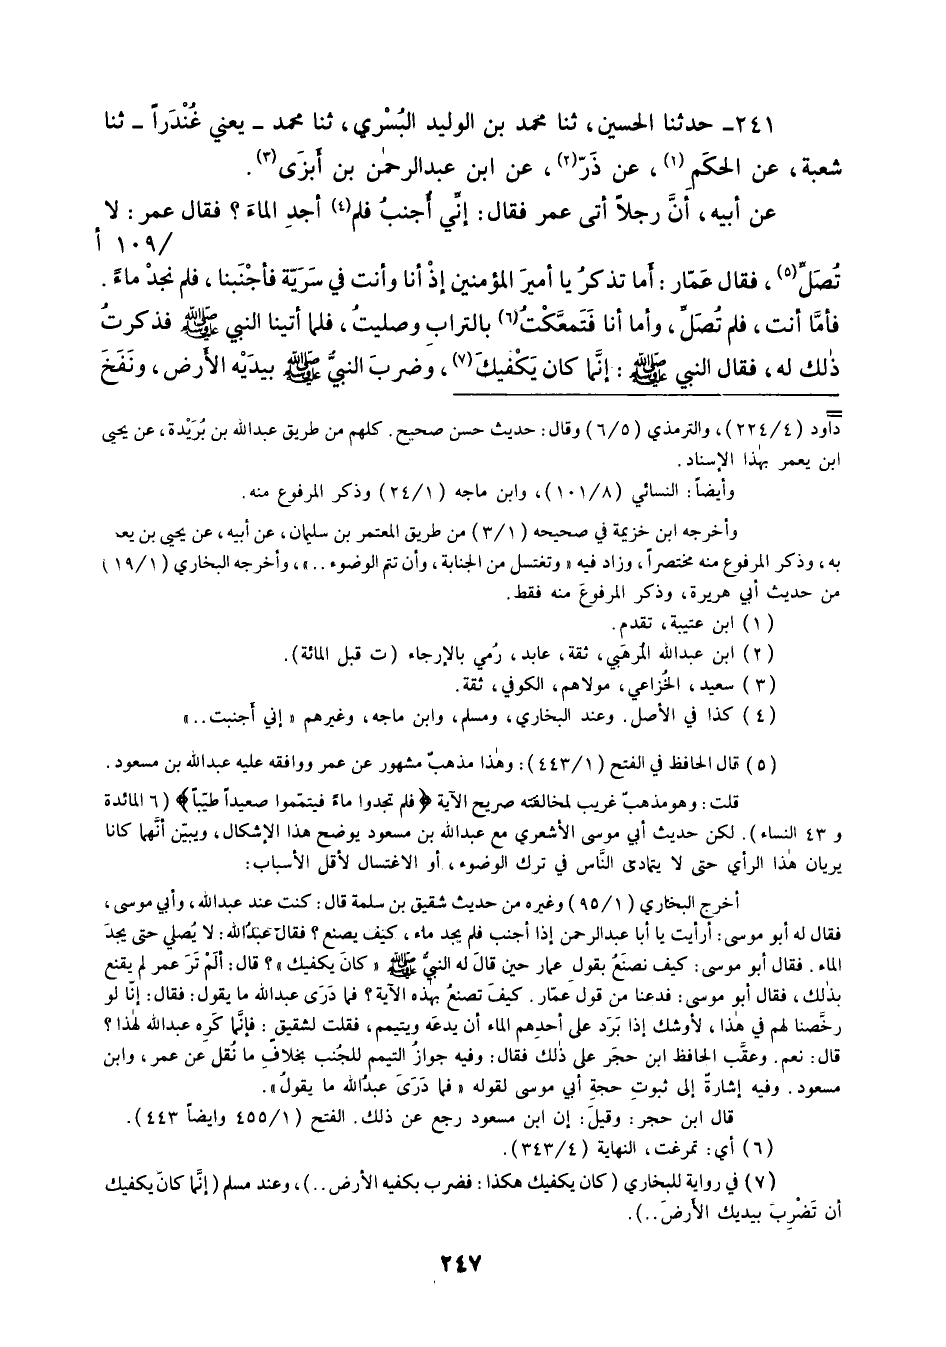 ٢٤١ـ حدثنا الحسين، ثنا محمد بن الوليد البُسْري، ثنا محمد ـ يعني غُنْدَراً ـ ثنا
شعبة، عن الحكَمِ (١)، عن ذَرّ (٢)، عن ابن عبدالرحمٰن بن أَبزَى (٣).
عن أبيه، أنَّ رجلاً أتى عمر فقال: إنّي أُجنبُ فلم (٤) أجدِ الماءَ؟ فقال عمر: لا
/١٠٩ أ
تُصَلِّ (٥)، فقال عَمّار: أما تذكرُ يا أميرَ المؤمنين إذْ أنا وأنت في سَرَيّة فأجْنَبنا، فلم نجدْ ماءً.
فأمَّا أنت، فلم تُصَلِّ، وأما أنا فَتَمعَّكْتُ (٦) بالترابِ وصليتُ، فلما أتينا النبي ﷺ فذكرتُ
ذٰلك له، فقال النبي ﷺ: إنَّما كان يَكْفيكَ (٧)، وضربَ النبيُّ ﷺ بيدَيْه الأَرض، ونَفَخَ
داود (٢٢٤/٤)، والترمذي (٦/٥) وقال: حديث حسن صحيح. كلهم من طريق عبدالله بن بُرَيْدة، عن يحيى
ابن يعمر بهٰذا الإسناد.
وأيضاً: النسائي (١٠١/٨)، وابن ماجه (٢٤/١) وذكر المرفوع منه.
وأخرجه ابن خزيمة في صحيحه (٣/١) من طريق المعتمر بن سليمان، عن أبيه، عن يحيى بن يعـ
به، وذكر المرفوع منه مختصراً، وزاد فيه « وتغتسل من الجنابة، وأن تتم الوضوء ..»، وأخرجه البخاري (١٩/١)
من حديث أبي هريرة، وذكر المرفوعَ منه فقط.
(١) ابن عتيبة، تقدم.
(٢) ابن عبدالله المُرهَبي، ثقة، عابد، رُمي بالإرجاء (ت قبل المائة).
(٣) سعيد، الخُزاعي، مولاهم، الكوفي، ثقة.
(٤) كذا في الأصل. وعند البخاري، ومسلم، وابن ماجه، وغيرهم « إني أَجنبت ..»
(٥) قال الحافظ في الفتح (٤٤٣/١): وهٰذا مذهبٌ مشهور عن عمر ووافقه عليه عبدالله بن مسعود.
قلت: وهو مذهبٌ غريب لمخالفته صريح الآية ﴿فلم تجدوا ماءً فيتمّموا صعيداً طيّباً﴾ (٦ المائدة
و ٤٣ النساء). لكن حديث أبي موسى الأشعري مع عبدالله بن مسعود يوضح هذا الإشكال، ويبيّن أنَّهما كانا
يريان هٰذا الرأي حتى لا يتمادى النَّاس في ترك الوضوء، أو الاغتسال لأقل الأسباب:
أخرج البخاري (٩٥/١) وغيره من حديث شقيق بن سلمة قال: كنت عند عبدالله، وأبي موسى،
فقال له أبو موسى: أرأيت يا أبا عبدالرحمن إذا أجنب فلم يجد ماء، كيف يصنع؟ فقال عبدُالله: لا يُصلي حتى يجدَ
الماء. فقال أبو موسى: كيف نصنَعُ بقولِ عمار حين قالَ له النبيُّ ﷺ « كانَ يكفيك »؟ قال: ألَمْ تَرَ عمر لم يقنع
بذٰلك، فقال أبو موسى: فدعنا من قول عمّار. كيفَ تصنعُ بهٰذه الآية؟ فما دَرَى عبدالله ما يقول: فقال: إنّا لو
رخَّصنا لهم في هٰذا، لأوشك إذا بَرَد على أحدهم الماء أن يدعَه ويتيمم، فقلت لشقيق: فإنَّما كَرِه عبدالله لهٰذا؟
قال: نعم. وعقَّب الحافظ ابن حجَر على ذٰلك فقال: وفيه جوازُ التيمم للجُنب بخلافِ ما نُقل عن عمر، وابن
مسعود. وفيه إشارةٌ إلى ثبوتِ حجةِ أبي موسى لقوله « فما دَرَىَ عبدُالله ما يقولُ».
قال ابن حجر: وقيلَ: إن ابن مسعود رجع عن ذلك. الفتح (٤٥٥/١ وايضاً ٤٤٣).
(٦) أي: تمرغت، النهاية (٣٤٣/٤).
(٧) في رواية للبخاري (كان يكفيك هكذا: فضرب بكفيه الأرض ..)، وعند مسلم (إنَّما كانَ يكفيك
أن تَضْرِبَ بيديك الأَرضَ ..).
٢٤٧